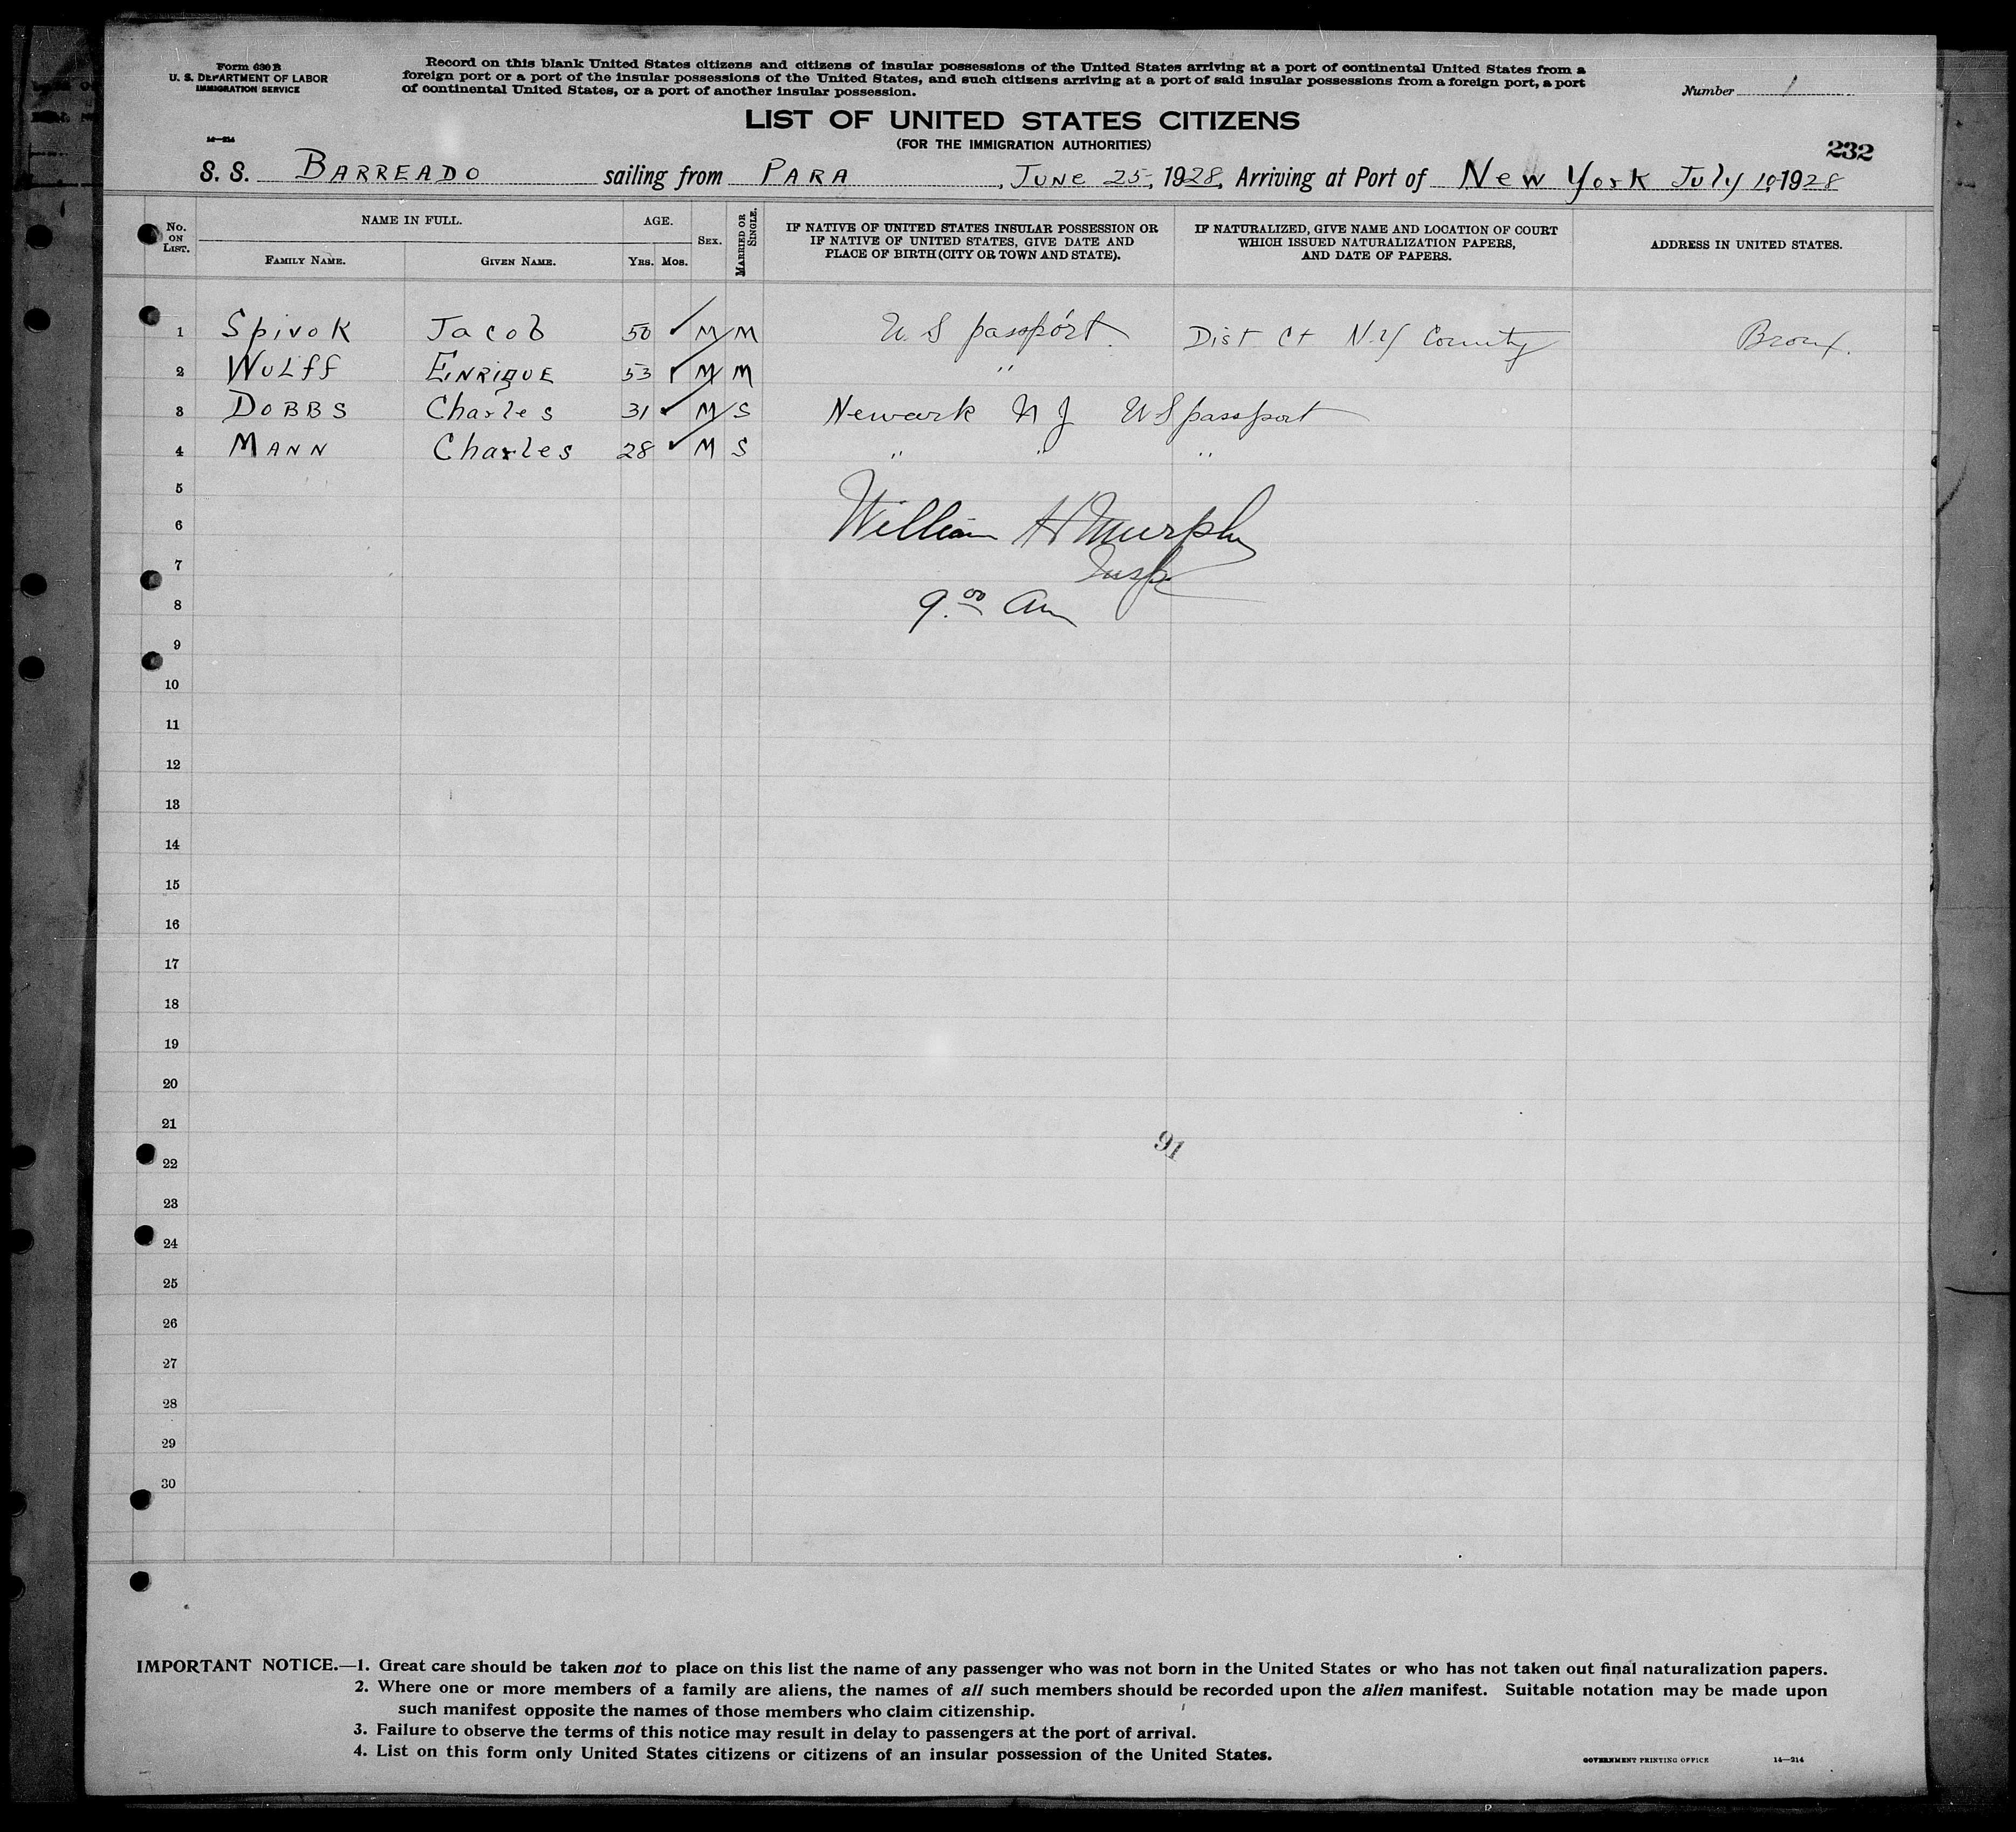 Form 630 B
U. S. DEPARTMENT OF LABOR
IMMIGRATION SERVICE
14—214
Record on this blank United States citizens and citizens of insular possessions of the United States arriving at a port of continental United States from a
foreign port or a port of the insular possessions of the United States, and such citizens arriving at a port of said insular possessions from a foreign port, a port
of continental United States, or a port of another insular possession.
Number 1
LIST OF UNITED STATES CITIZENS
(FOR THE IMMIGRATION AUTHORITIES)
232
S. S. BARREADO sailing from PARA, JUNE 25, 1928, Arriving at Port of New York July 10, 1928
No. ON LIST. NAME IN FULL. FAMILY NAME. GIVEN NAME. AGE. YRS. MOS. SEX. MARRIED OR SINGLE. IF NATIVE OF UNITED STATES INSULAR POSSESSION OR IF NATIVE OF UNITED STATES, GIVE DATE AND PLACE OF BIRTH (CITY OR TOWN AND STATE). IF NATURALIZED, GIVE NAME AND LOCATION OF COURT WHICH ISSUED NATURALIZATION PAPERS, AND DATE OF PAPERS. ADDRESS IN UNITED STATES.
1 Spivok Jacob 50 ✓ M M U S passport. Dist Ct N.Y County Bronx.
2 Wulff ENRIQUE 53 ✓ M M "
3 DOBBS Charles 31 ✓ M S Newark N J US passport
4 MANN Charles 28 ✓ M S " " "
5
6 William H Murphy
7 Insp
8 9.00 Am
9
10
11
12
13
14
15
16
17
18
19
20
21
91
22
23
24
25
26
27
28
29
30
IMPORTANT NOTICE.—1. Great care should be taken not to place on this list the name of any passenger who was not born in the United States or who has not taken out final naturalization papers.
2. Where one or more members of a family are aliens, the names of all such members should be recorded upon the alien manifest. Suitable notation may be made upon
such manifest opposite the names of those members who claim citizenship.
3. Failure to observe the terms of this notice may result in delay to passengers at the port of arrival.
4. List on this form only United States citizens or citizens of an insular possession of the United States.
GOVERNMENT PRINTING OFFICE 14—214